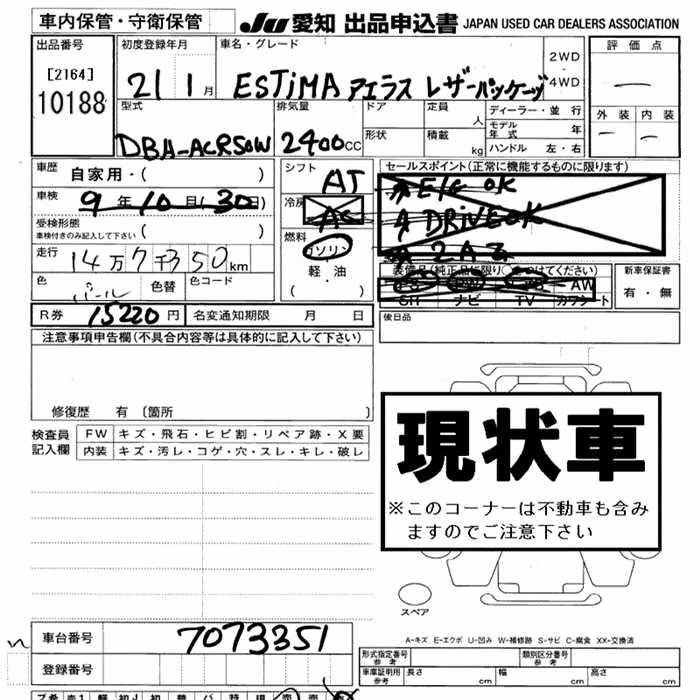 車内保管・守衛保管
JU 愛知 出品申込書 JAPAN USED CAR DEALERS ASSOCIATION
出品番号 初度登録年月 車名・グレード 評価点
[2164]
10188
21 1月 ESTiMA アエラス レザーパッケージ 2WD・4WD
—
外装 内装
— —
型式 排気量 ドア 定員 人 ディーラー・並行
DBA-ACR50W 2400cc 形状 積載 kg モデル年式 年
ハンドル 左・右
車歴 自家用・( )
シフト AT
セールスポイント(正常に機能するものに限ります)
車検 9年10月(30日)
冷房 AC
E/G OK
DRIVE OK
2AZ
受検形態
車検付きのみ記入して下さい ( )
燃料 ガソリン
軽・油
( )
走行 14万7千350km
色 パール 色替 色コード
装備品(純正品に限り○をつけてください)
PS PW AW
SR ナビ TV カワシート
新車保証書
有・無
R券 15220円 名変通知期限 月 日
後日品
注意事項申告欄(不具合内容等は具体的に記入して下さい)
修復歴 有〔箇所 〕
検査員記入欄 FW キズ・飛石・ヒビ割・リペア跡・X要
内装 キズ・汚レ・コゲ・穴・スレ・キレ・破レ
現状車
※このコーナーは不動車も含みますのでご注意下さい
スペア
A-キズ E-エクボ U-凹み W-補修跡 S-サビ C-腐食 XX-交換済
車台番号 7073351
登録番号
形式指定番号 参考 類別区分番号 参考
車庫証明用 参考 長さ cm 幅 cm 高さ cm